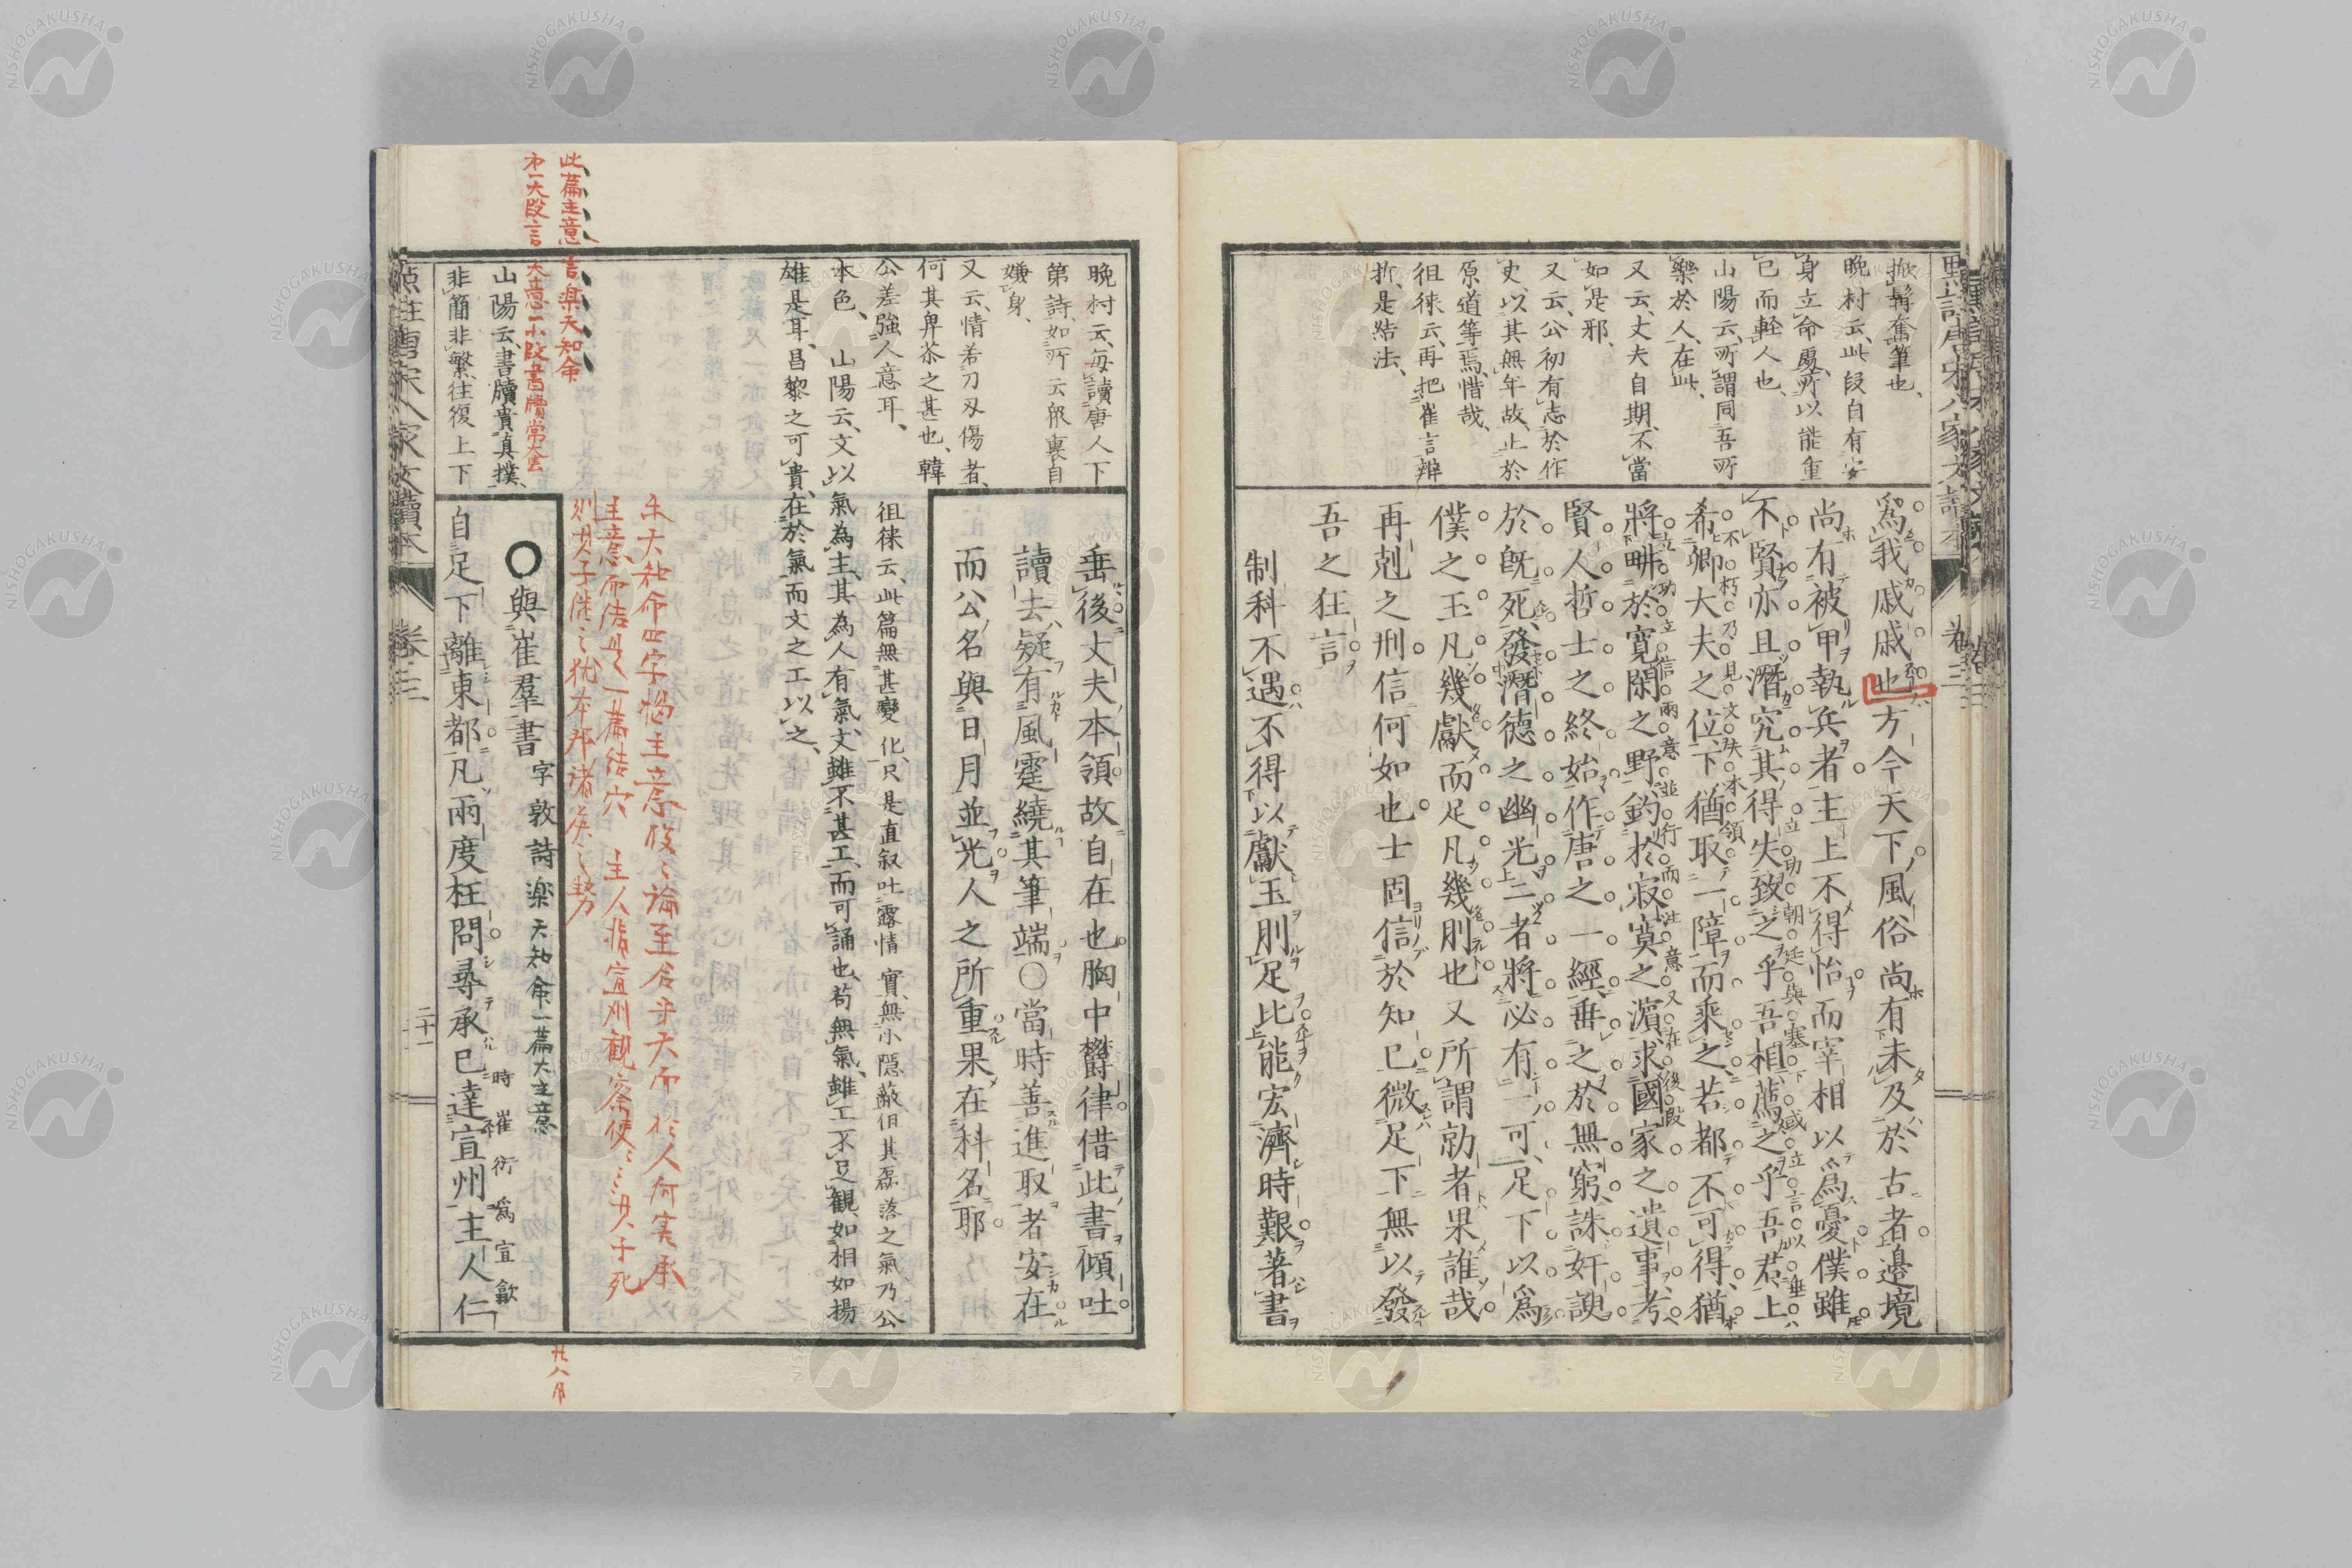 掀髯奮筆也、
晩村云、此段自有安
身立命處、所以能重
已而軽人也、
山陽云、所謂同吾所
樂於人、在此、
又云、丈夫自期、不當
如是邪、
又云、公初有志於作
史、以其無年故、止於
原道等焉、惜哉、
徂徠云、再把崔言辨
折、是結法、
爲我戚戚也方今天下風俗尚有未及於古者邊境
尚有被甲執兵者主上不得怡而宰相以爲憂僕雖
不賢亦且潛究其得失致之乎吾相薦之乎吾君上
希卿大夫之位下猶取一障而乘之若都不可得猶
將畊於寛閑之野釣於寂寞之濵求國家之遺事考
賢人哲士之終始作唐之一經垂之於無窮誅奸諛
於旣死發潛德之幽光二者將必有一可足下以爲
僕之玉凡幾獻而足凡幾刖也又所謂勍者果誰哉
再剋之刑信何如也士固信於知已微足下無以發
吾之狂言
制科不遇不得以獻玉刖足比能宏濟時艱著書
立功立信兩意並行而注意又在後段
不朽乃見文失本領
立功朝廷與塞下域立言以垂
卷三
晩村云、毎讀唐人下
第詩、如所云郎裏自
嫌身、
又云、情若刀刄傷者、
何其卑苶之甚也、韓
公差強人意耳、
垂後丈夫本領故自在也胸中欝律借此書傾吐
讀去疑有風霆繞其筆端〇當時善進取者安在
而公名與日月並光人之所重果在科名耶
徂徠云、此篇無甚變化、只是直叙吐露情實、無小隠蔽但其磊落之氣乃公
本色、 山陽云、文以氣為主、其為人有氣、文雖不甚工、而可誦也、苟無氣、雖工不足觀、如相如揚
雄是耳、昌黎之可貴、在於氣、而文之工以之、
此篇主意 言楽天知命
㐧一大段言 大意一小段書牘常套
樂天知命四字爲主意段々論至合乎天而
主意而結是一篇結穴 主人指宣州觀察使
山陽云、書牘貴真撲、
非簡非繁、往復上下
〇與崔羣書 字敦詩 楽天知命一篇大主意
自足下離東都凡兩度枉問尋承已達宣州主人仁
時崔衍爲宣歙
點註唐宋八家文讀本
卷三
二十一